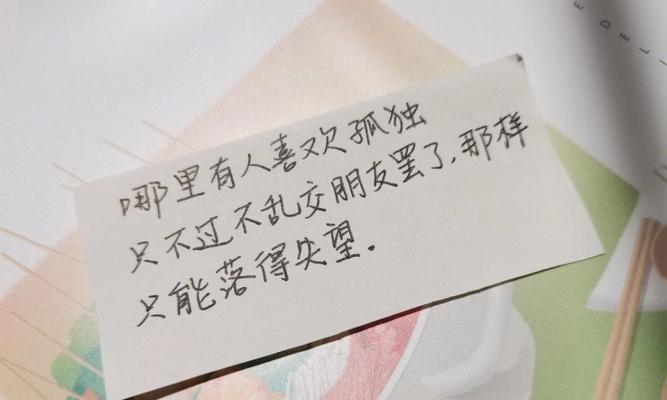 哪里有人喜欢孤独
只不过不乱交朋友罢了，那样
只能落得失望。
E DELI